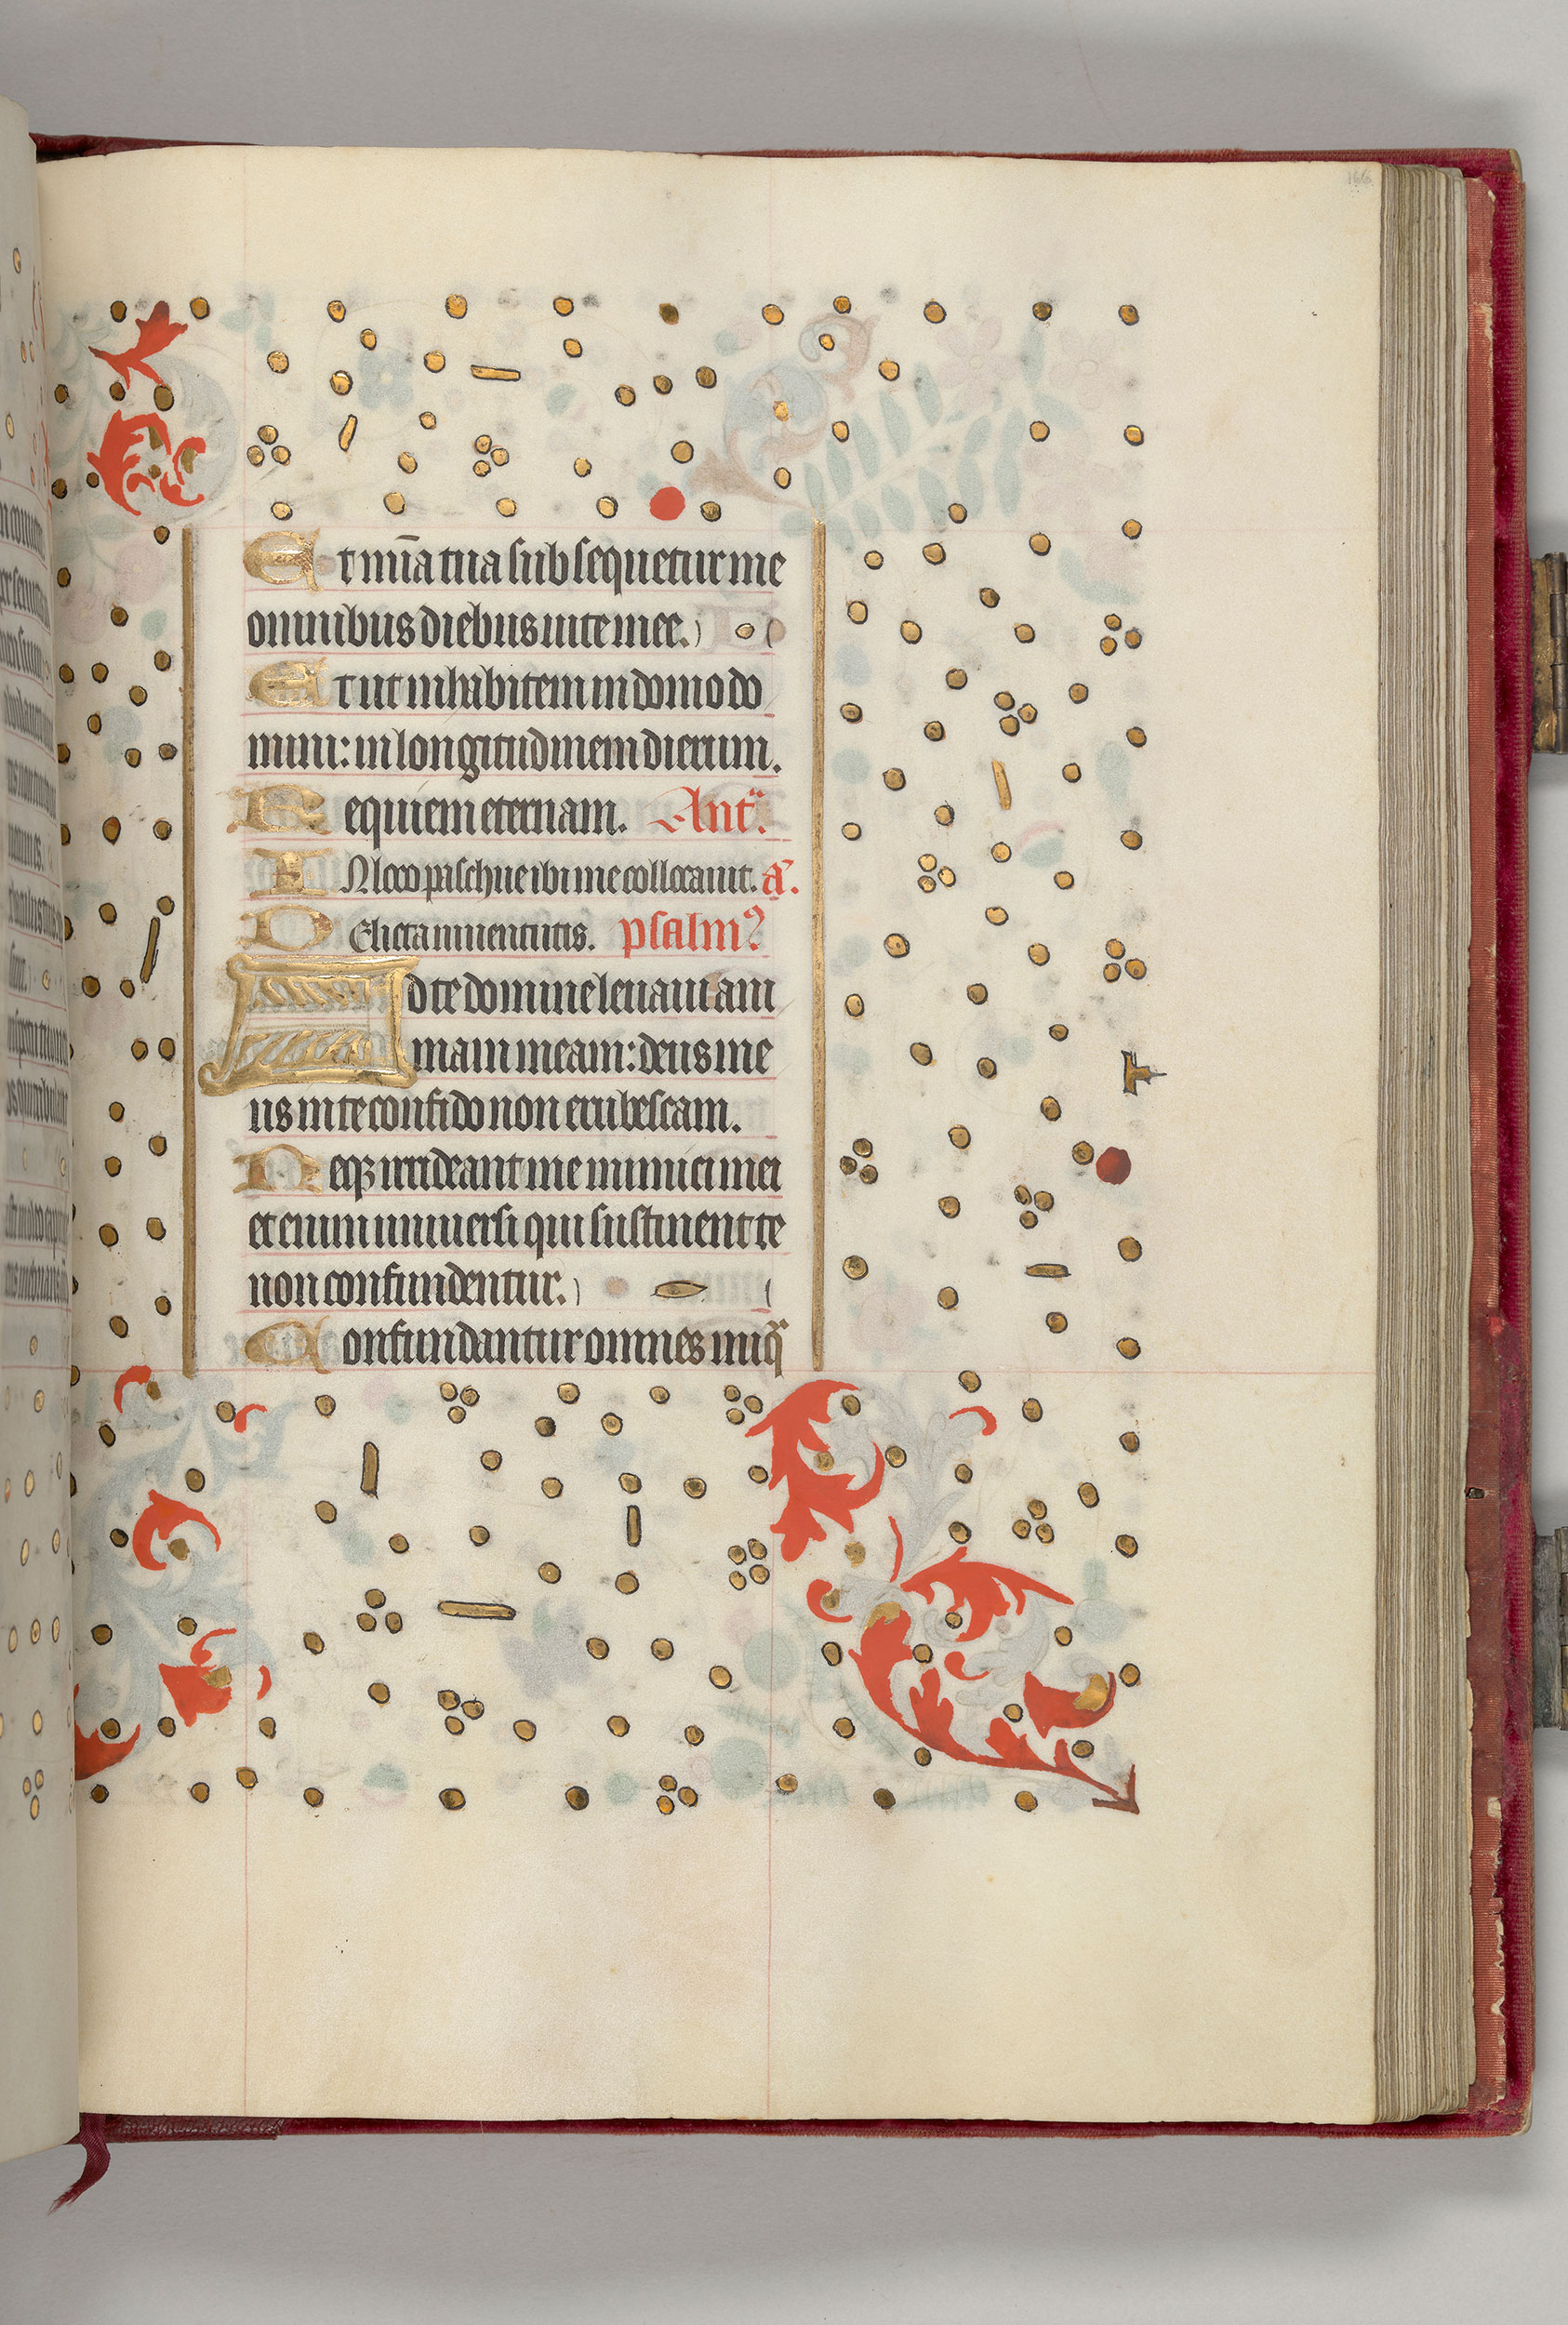 166
Et mīa tua subsequetur me
omnibus diebus vite mee.
Et ut inhabitem in domo do
mini: in longitudinem dierum.
Requiem eternam. Ant̄.
IN loco paschue ibi me collocavit. a͞.
DElicta iuventutis. psalmꝰ
Ad te domine levavi am
mam meam: deus me
us in te confido non erubescam.
Neqꝫ irrideant me inimici mei
etenim universi qui sustinent te
non confundentur.
Confundantur omnes iniq̄